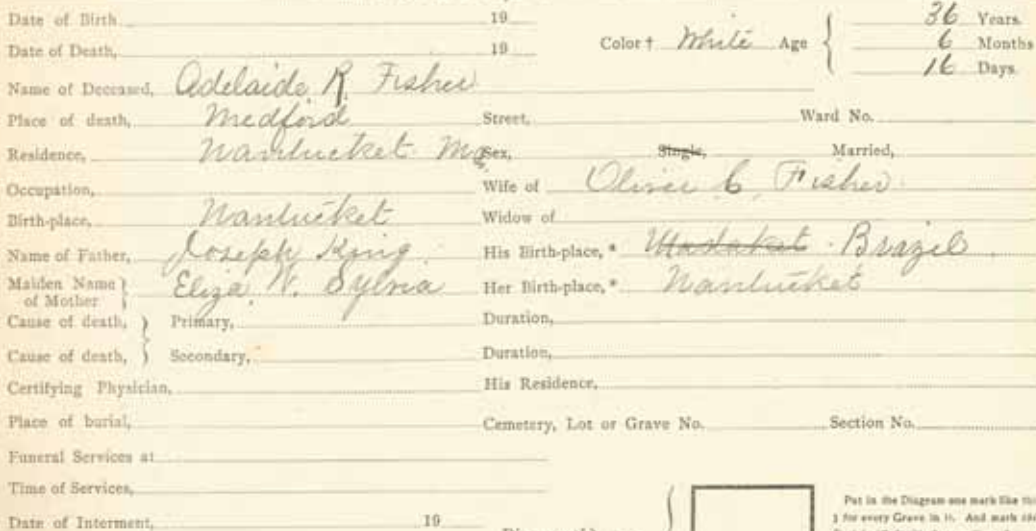 Date of Birth 19
Date of Death, 19 Color † White Age 36 Years. 6 Months 16 Days.
Name of Deceased, Adelaide R. Fisher
Place of death, Medford Street, Ward No.
Residence, Nantucket Mass Sex, Single, Married,
Occupation, Wife of Oliver C. Fisher
Birth-place, Nantucket Widow of
Name of Father, Joseph King. His Birth-place, * Madaket - Brazil
Maiden Name of Mother Eliza W. Sylvia Her Birth-place, * Nantucket
Cause of death, Primary, Duration,
Cause of death, Secondary, Duration,
Certifying Physician, His Residence,
Place of burial, Cemetery, Lot or Grave No. Section No.
Funeral Services at
Time of Services,
Put in the Diagram one mark like this
1 for every Grave in it. And mark
Date of Interment, 19